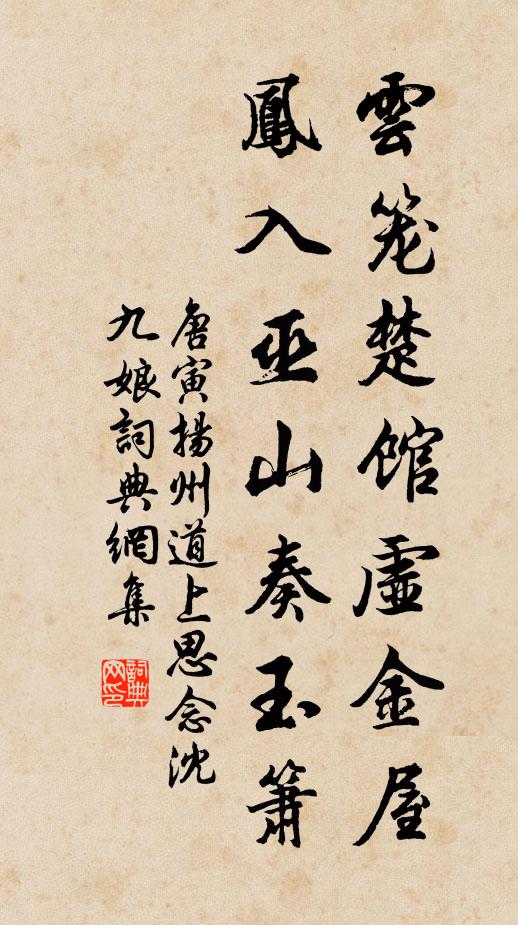 雲笼楚馆虛金屋
鳳入巫山奏玉簫
唐寅揚州道上思念沈
九娘詞典網集
詞典
网印